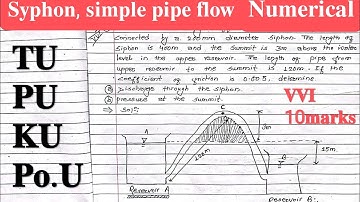 Syphon, simple pipe flow Numerical
connected by a 200mm diameter siphon. The length of
siphon is 400m and the summit is 3m above the water
level in the upper reservoir. The length of pipe from
upper reservoir to the summit is 120m. If the
coefficient of friction is 0.005, determine
(a) Discharge through the siphon.
(b) pressure at the summit.
⇒ Solⁿ:
TU
PU
KU
Po.U
VVI
10marks
C
3m
A
120m
15m
B
Reservoir A
Reservoir B: